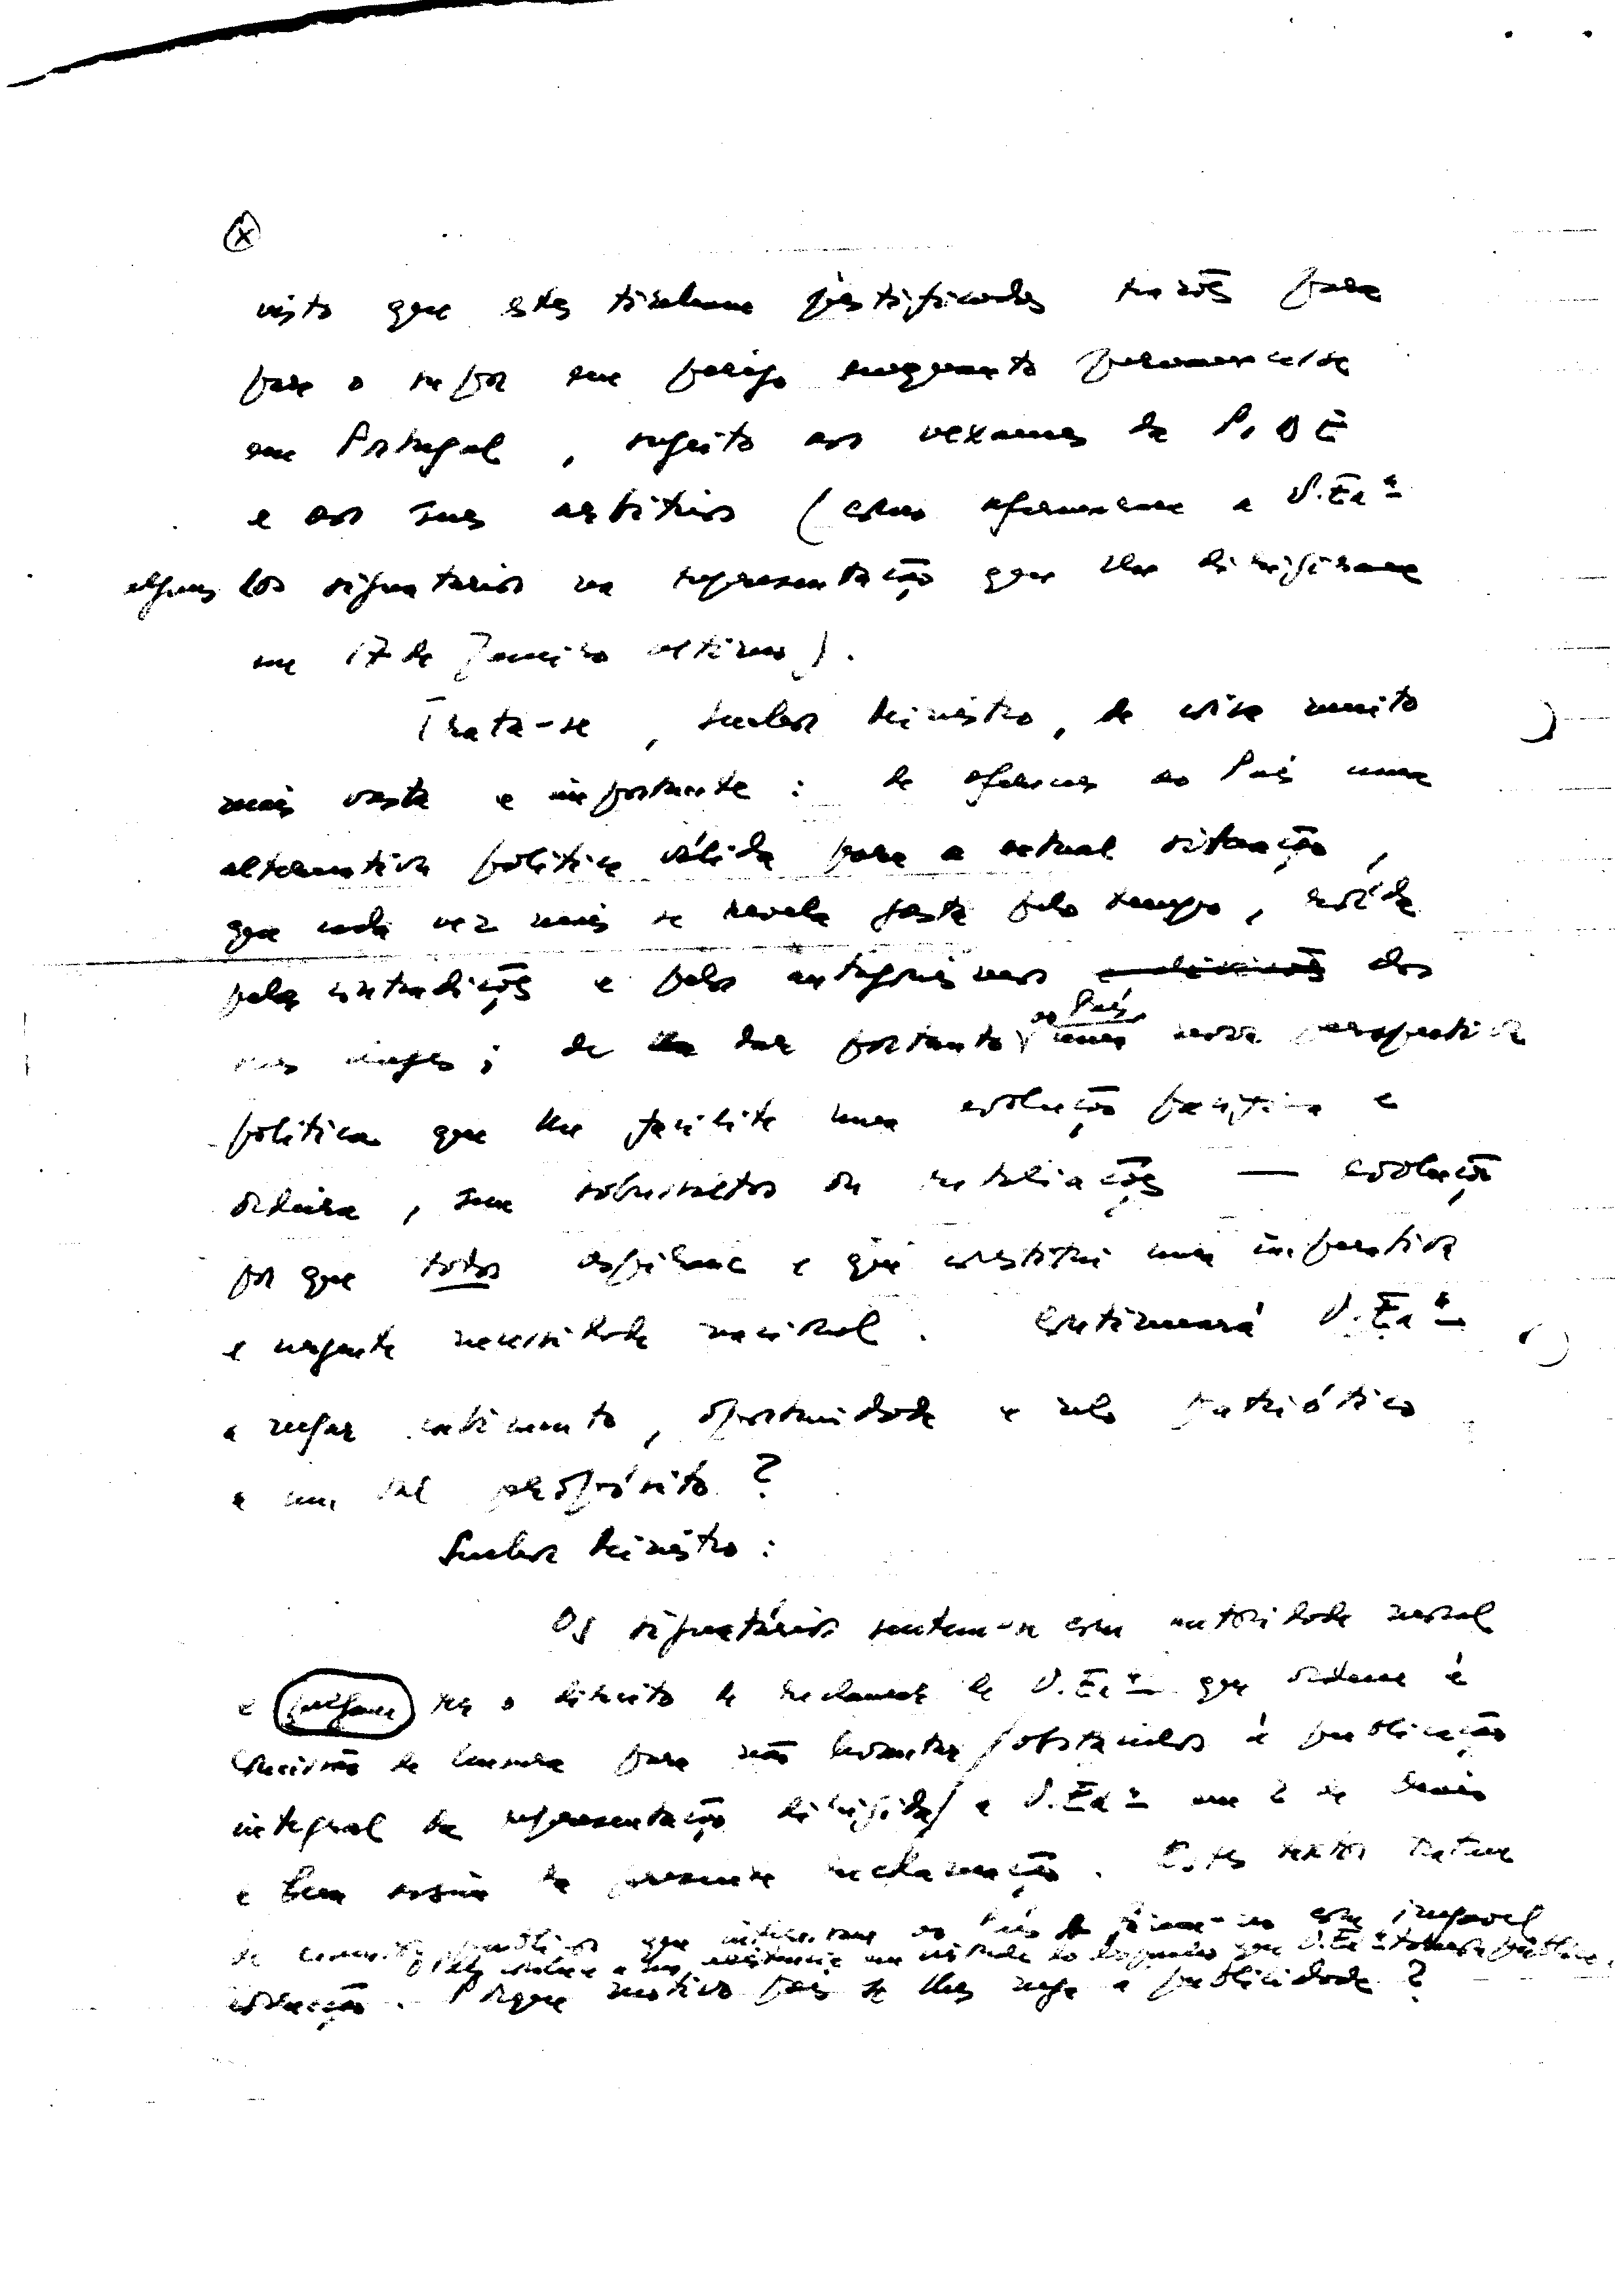 x
visto que estes tinham justificadas razões para
para o supor em perigo enquanto permanecesse
em Portugal, sujeito aos vexames da P.I.D.E
e aos seus arbítrios (como afirmaram a V. Exª
alguns dos signatarios na representação que lhe dirigiram
em 17 de Janeiro ultimo).
Trata-se, Senhor Ministro, de coisa muito
mais vasta e importante: de oferecer ao País uma
alternativa política válida para a actual situação,
que cada vez mais se revela gasta pelo tempo, roída
pelas contradições e pelos antagonismos dos
seus; de dar portanto ao País uma nova perspectiva
politica que lhe facilite uma evolução pacífica e
ordeira, sem sobressaltos ou retaliações — evolução
por que todos aspiram e que constitui uma imperativa
e urgente necessidade nacional. Continuará V. Exª
a negar cabimento, oportunidade e zelo patriótico
a um tal propósito?
Senhor Ministro:
Os signatários sentem-se com autoridade moral
e julgam ter o direito de reclamar de V. Exª que ordene à
Comissão de Censura para não levantar obstaculos à publicação
integral da representação dirigida a V. Exª em 2 de Maio
e bem assim da presente reclamação. Estes textos tratam
de público que interessam ao País com
a sua existencia em virtude do despacho que V. Exª tornar pública.
Porque motivo pois se lhes nega a publicidade?